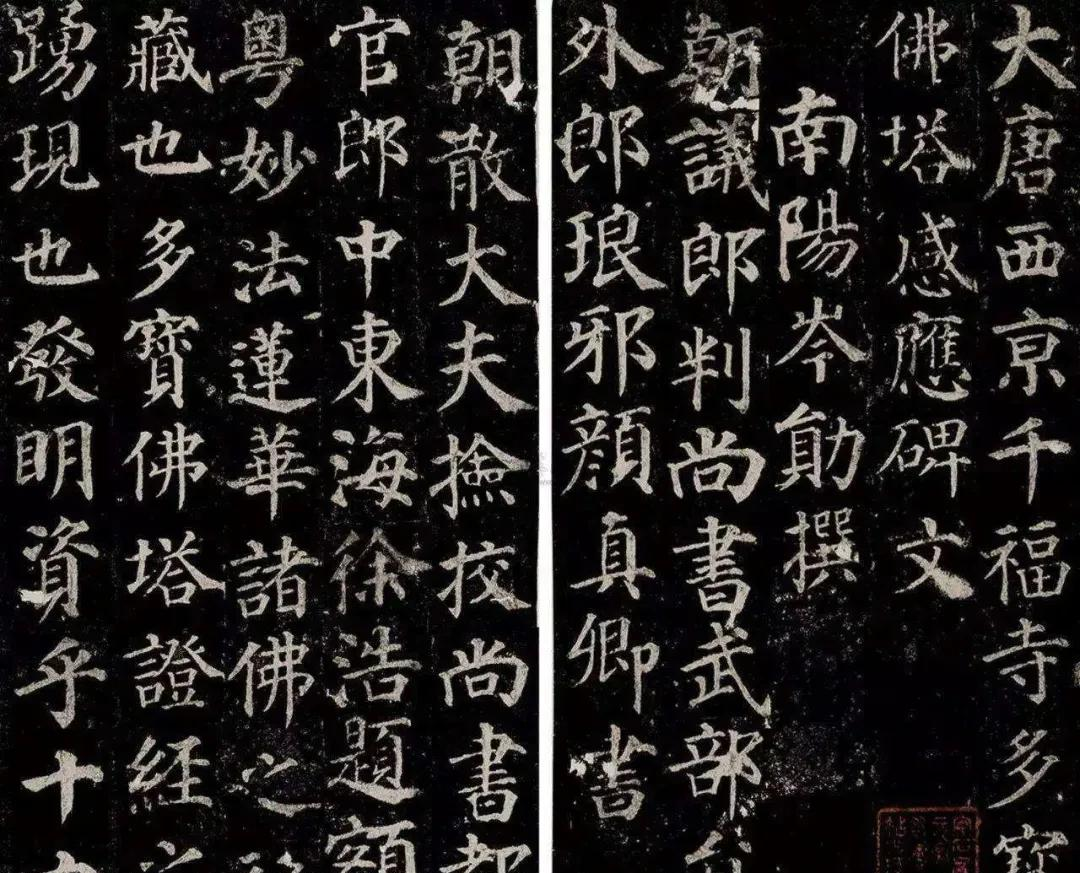 大唐西亰千福寺多寳
佛塔感應碑文
南陽岑勛撰
朝議郎判尚書武部
外郎琅邪顏真卿書
朝散大夫撿挍尚書都
官郎中東海徐浩題額
粵妙法蓮華諸佛之
藏也多寳佛塔證經之
踴現也發明資乎十